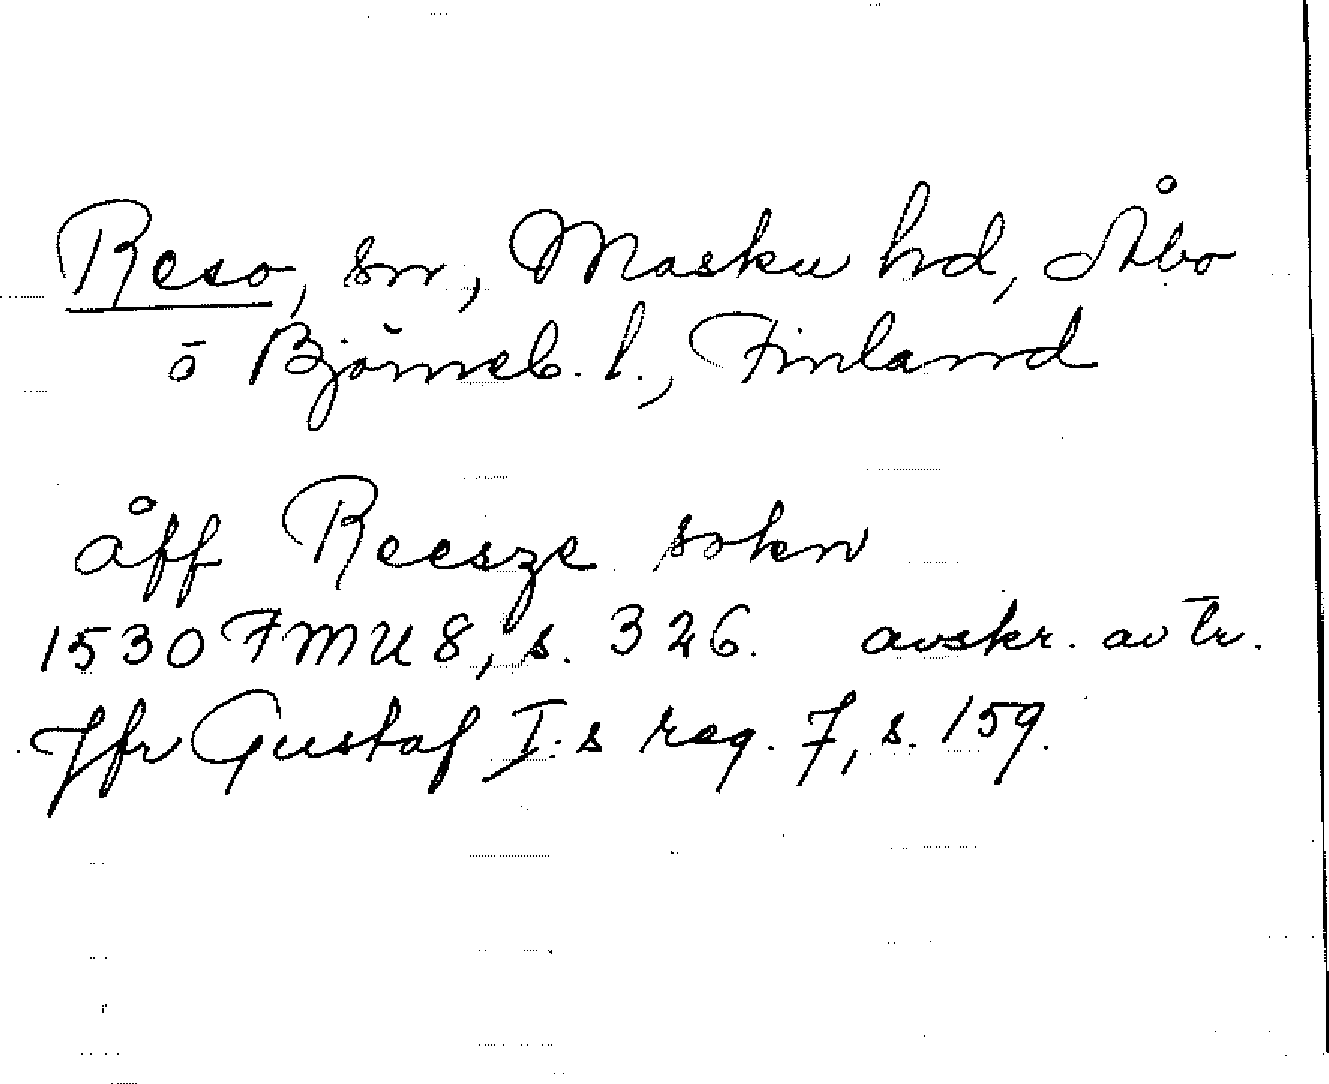 Reso, sn, Masku hd, Åbo
o Björneb. l., Finland
åff Reesze sokn
1530 FMU 8, s. 326. avskr. av tr.
Jfr Gustaf I:s reg. 7, s. 159.